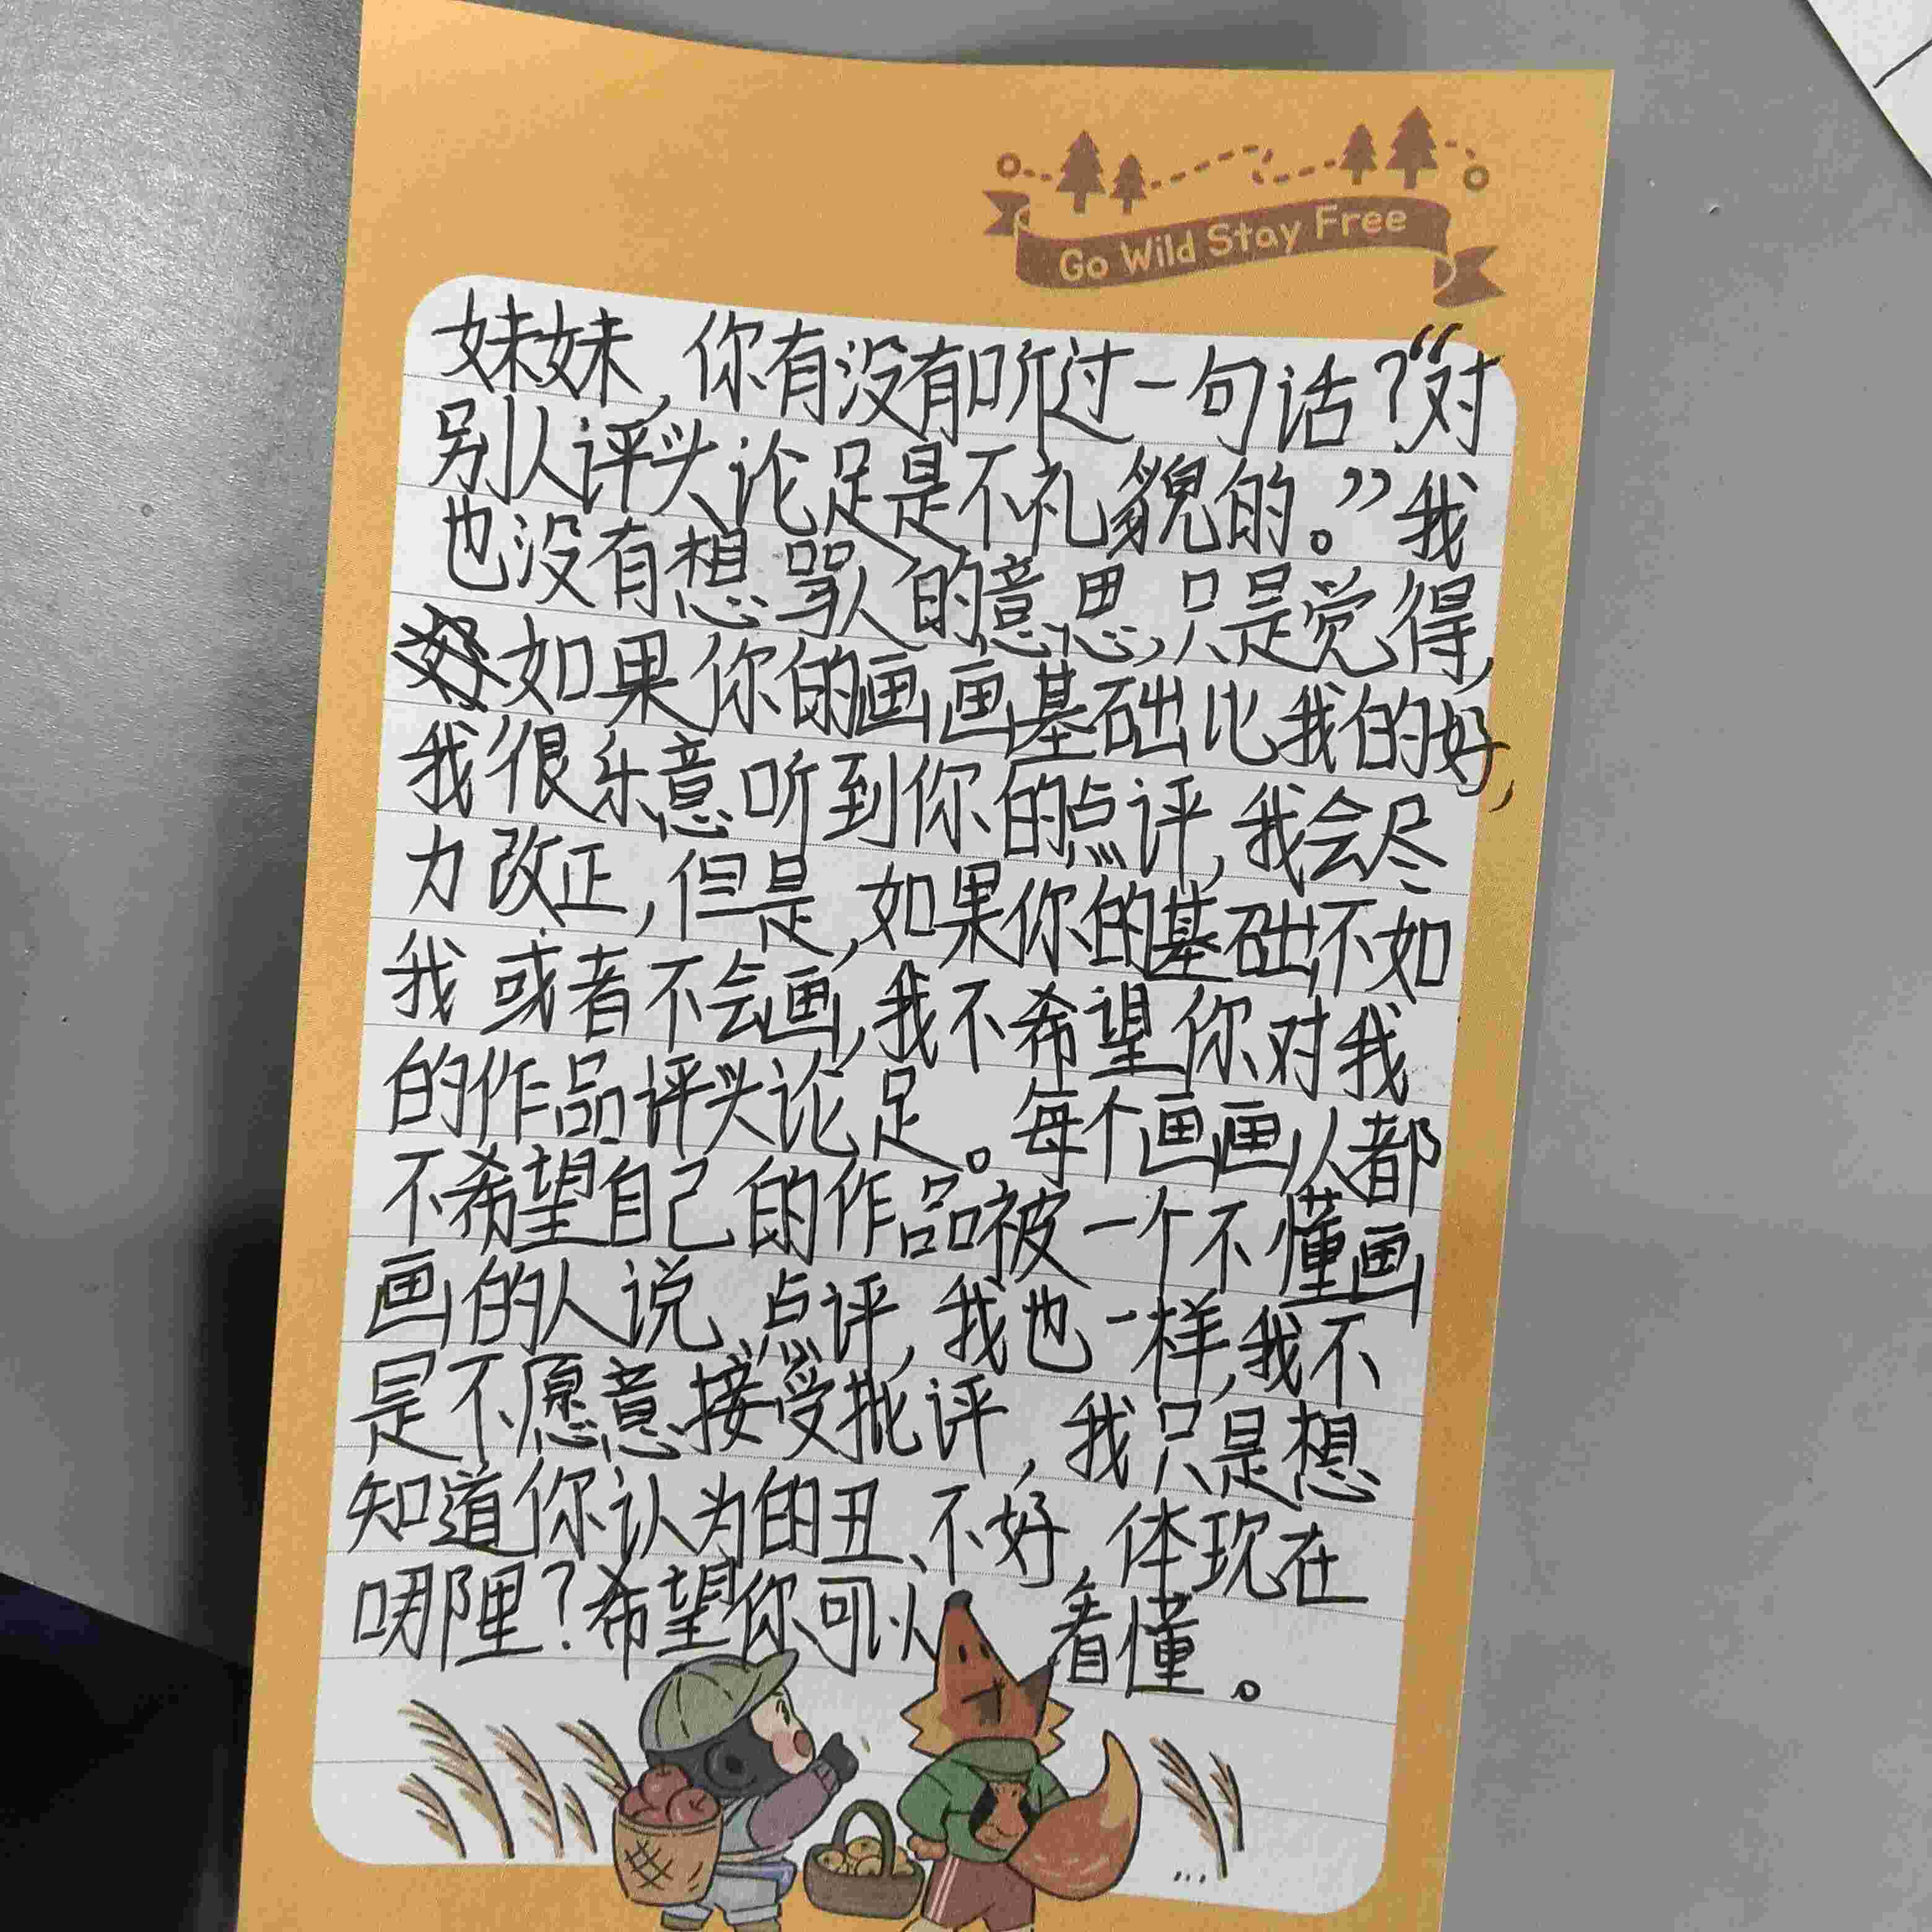 Go Wild Stay Free
妹妹,你有没有听过一句话?“对
别人评头论足是不礼貌的。”我
也没有想骂人的意思,只是觉得,
如果你的画画基础比我的好,
我很乐意听到你的点评,我会尽
力改正,但是,如果你的基础不如
我或者不会画,我不希望你对我
的作品评头论足。每个画画人都
不希望自己的作品被一个不懂画
画的人说、点评,我也一样,我不
是不愿意接受批评,我只是想
知道你认为的丑、不好,体现在
哪里?希望你可以看懂。